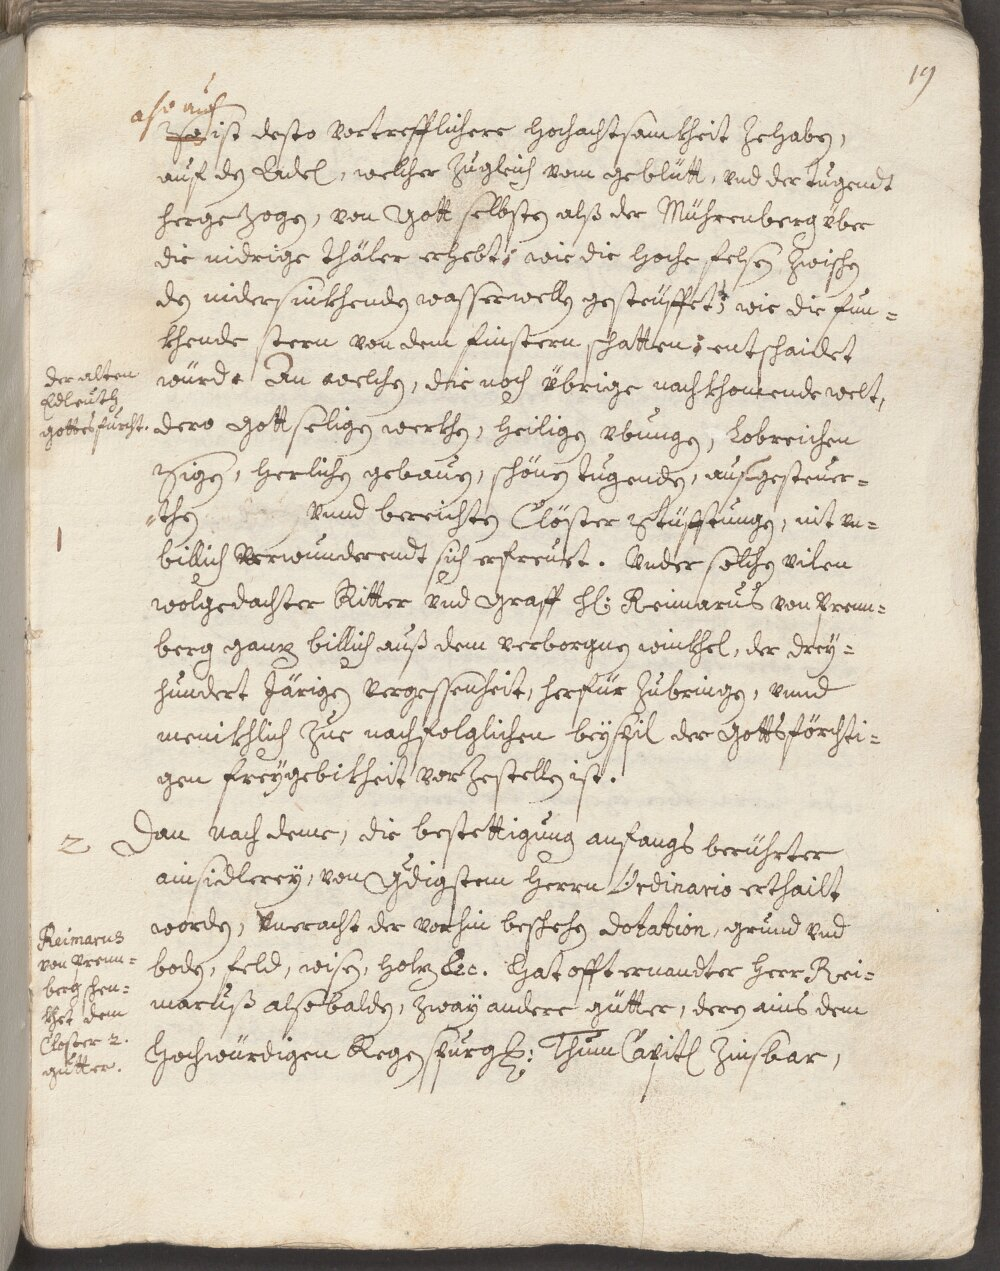 19
also auch
So ist desto vortrefflichere Hochachtsamkheit Zehaben,
auf den Aadel, welcher Zugleich vom geblütt, vnd der tugendt
hergezogen, von Gott selbsten alß der Mührenberg über
die nidrige thäler erhebt: wie die Hoche felsen zwischen
den nidersinkhenden wasserwellen gesteüffet: wie die fun=
khende stern von dem finstern schatten: entschaidet
würd. An welchen, die noch übrige nachkhomende welt,
dero Gottseligen werkhen, heiligen ubungen, Lobreichen
Sigen, Herlichen gebauen, schönen tugenden, aufgesteuer=
then vnnd bereichten Clöster Stüfftungen, nit un=
billich Verwunderendt sich erfreuet. Vnder solchen vilen
wolgedachter Ritter vnd Graff H: Reimarus von Prenn=
berg ganz billich auß dem verborgnen winkhel, der drey=
hundert Järigen vergessenheit, herfür zubringen, vnnd
menikhlich zue nachfolglichen beyspil der Gottsförchti=
gen freygebikheit vorZestellen ist.
der alten
Edleuth
gottesfurcht.
1
2 Dan nach deme, die bestettigung anfangs berührter
ainsidlerey, von Gdigstem Herrn Ordinario erthailt
worden, vneracht der vorhin beschehen dotation, grund vnd
boden, feld, wisen, holz &c. Hat offternandter Herr Rei=
maruß alsobalden, zway andere gütter, deren ains dem
Hochwürdigen Regenspurg: Thum Capitl zinsbar,
Reimarus
von Prenn=
berg schen=
khet dem
Closter 2.
gütter.